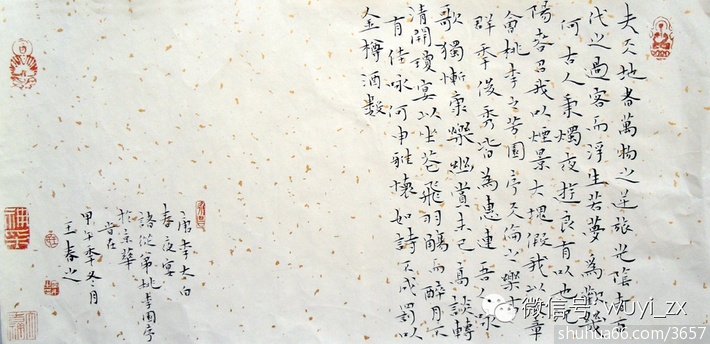 夫天地者萬物之逆旅光陰者百
代之過客而浮生若夢為歡幾
何古人秉燭夜遊良有以也況
陽春召我以煙景大塊假我以文章
會桃李之芳園序天倫之樂事
群季俊秀皆為惠連吾人詠
歌獨慚康樂幽賞未已高談轉
清開瓊宴以坐花飛羽觴而醉月不
有佳咏何申雅懷如詩不成罰以
金樽酒數
唐李太白
春夜宴
諸從弟桃李園序
於京華
甲午年冬月
王春之
微信号: wuyi_zx
shuhua66.com/3657